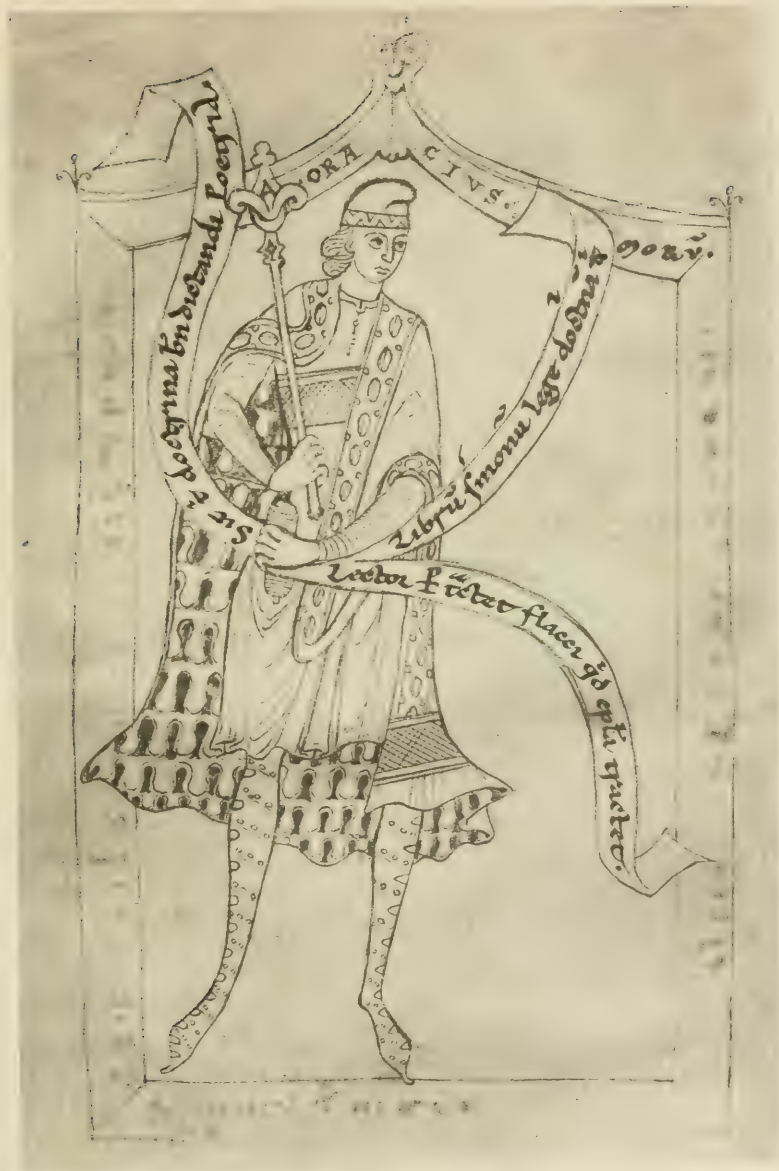 ORACIVS.
Sit t̉ doctrina bn̄ dictandi poetria.
Librũ s̉monũ lege doctⁱnã
morũ.
Lector ꝑtͣctet flacci qͩ epl̃a tractet.